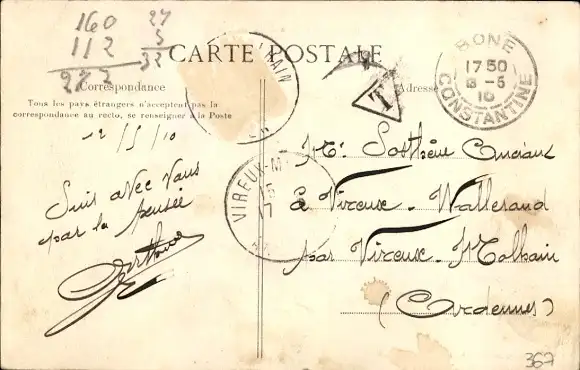 160
112
272
27
5
32
CARTE POSTALE
Correspondance
Adresse
Tous les pays étrangers n'acceptent pas la
correspondance au recto, se renseigner à la Poste
12/5/10
Suis avec vous
par la pensée
BONE
17 50
13-5
10
CONSTANTINE
T
VIREUX-M
15
17
Mr. Sosthène
à Vireux-Wallerand
par Vireux-Molhain
(Ardennes)
367